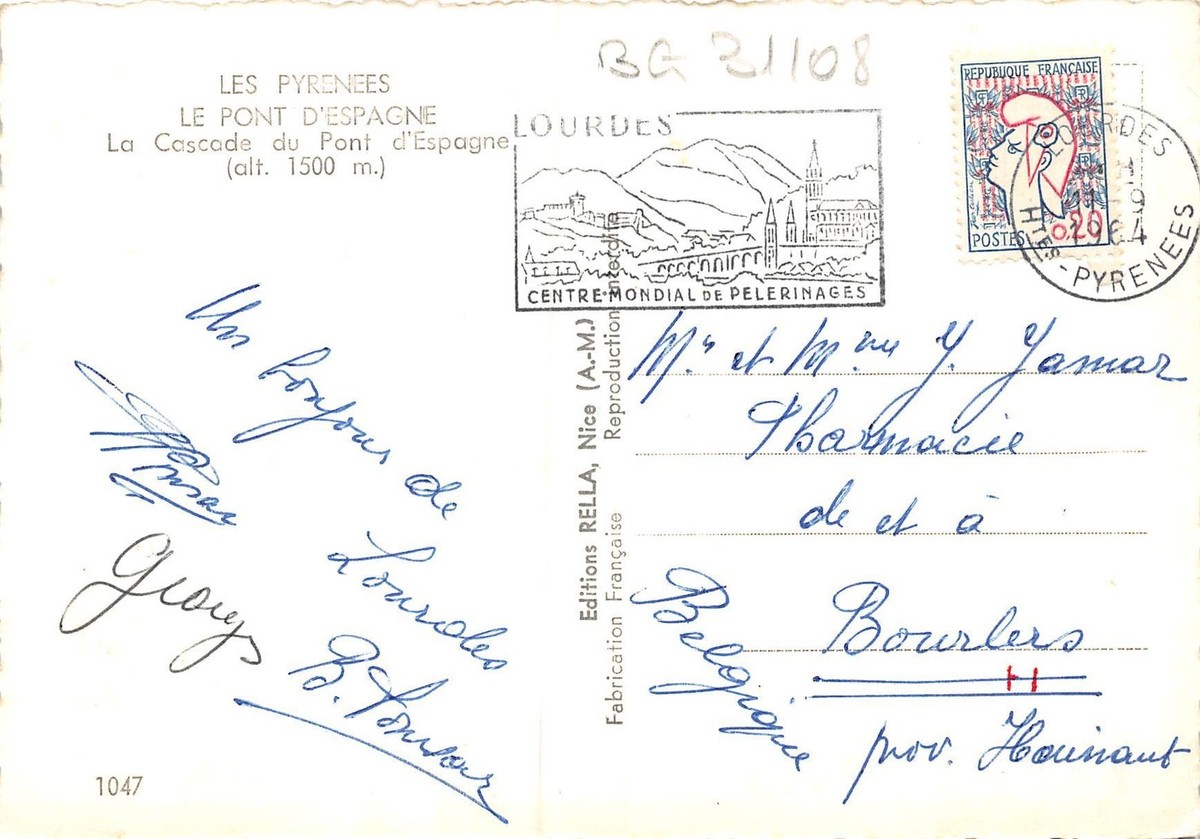 BG 31108
LES PYRENEES
LE PONT D'ESPAGNE
La Cascade du Pont d'Espagne
(alt. 1500 m.)
LOURDES
CENTRE MONDIAL DE PELERINAGES
REPUBLIQUE FRANÇAISE
POSTES 0,20
LOURDES
1964
Htes-PYRENEES
Un bonjour de
Lourdes
Georges
1047
Editions RELLA, Nice (A.-M.)
Fabrication Française Reproduction interdite
Mr et Mme J. Jamar
Pharmacie
de et à
Bourlers
prov. Hainaut
Belgique